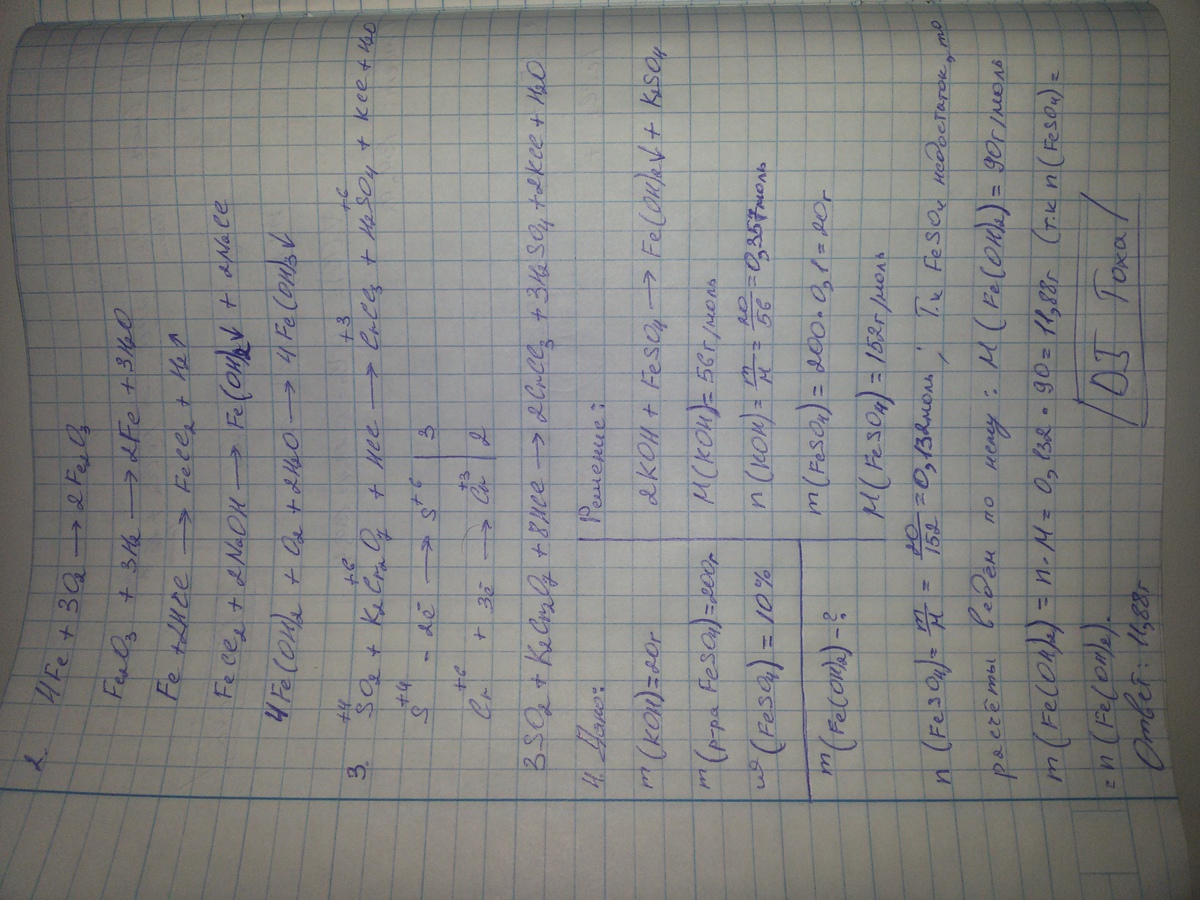 2. 4Fe + 3O₂ → 2Fe₂O₃
Fe₂O₃ + 3H₂ → 2Fe + 3H₂O
Fe + 2HCl → FeCl₂ + H₂↑
FeCl₂ + 2NaOH → Fe(OH)₂↓ + 2NaCl
4Fe(OH)₂ + O₂ + 2H₂O → 4Fe(OH)₃↓
+4 +6 +3 +6
3. SO₂ + K₂Cr₂O₇ + HCl → CrCl₃ + H₂SO₄ + KCl + H₂O
S⁺⁴ - 2ē → S⁺⁶ | 3
Cr⁺⁶ + 3ē → Cr⁺³ | 2
3SO₂ + K₂Cr₂O₇ + 8HCl → 2CrCl₃ + 3H₂SO₄ + 2KCl + H₂O
4. Дано:
m(KOH)=20г
m(р-ра FeSO₄)=200г
ω(FeSO₄) = 10%
m(Fe(OH)₂) - ?
Решение:
2KOH + FeSO₄ → Fe(OH)₂↓ + K₂SO₄
M(KOH)=56г/моль
n(KOH) = m/M = 20/56 = 0,357моль
m(FeSO₄) = 200 · 0,1 = 20г
M(FeSO₄) = 152г/моль
n(FeSO₄) = m/M = 20/152 = 0,132моль ; Т.к FeSO₄ недостаток, то
расчёты ведём по нему: M(Fe(OH)₂) = 90г/моль
m(Fe(OH)₂) = n · M = 0,132 · 90 = 11,88г (т.к n(FeSO₄) =
= n(Fe(OH)₂).
Ответ: 11,88г
/DJ Тока/